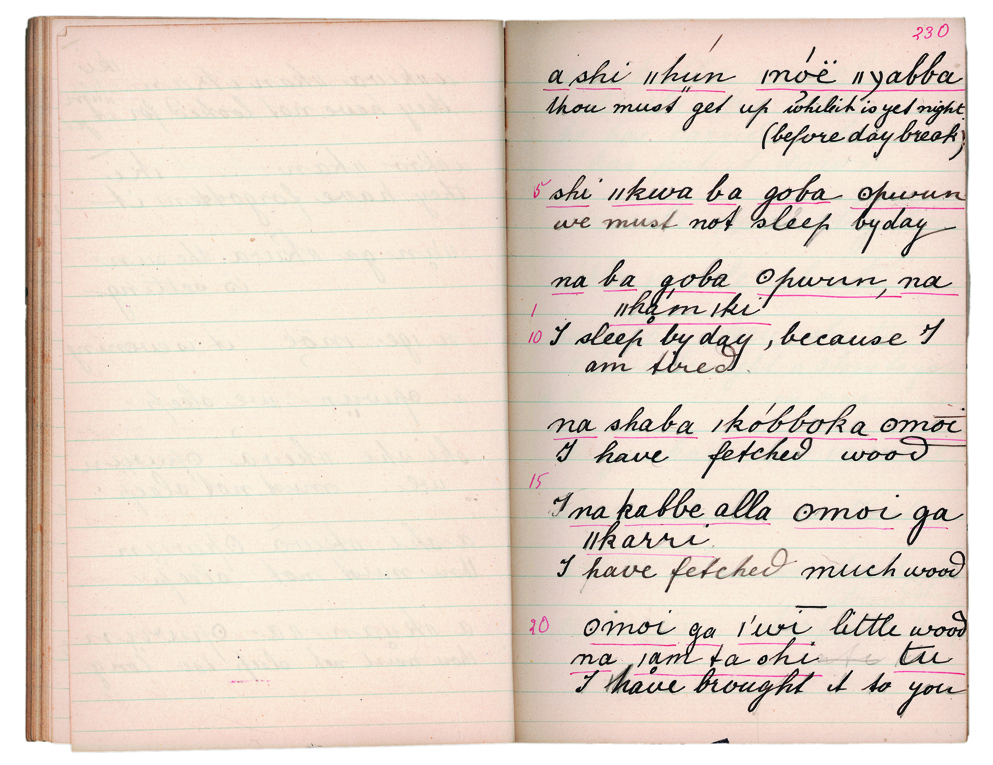 230
a shi ǁhun ǀnóë ǁyabba
thou must get up while it is yet night
(before day break)
5 shi ǁkwa ba goba ʘpwun
we must not sleep by day
na ba goba ʘpwun, na
ǁhám ǀki
10 I sleep by day, because I
am tired.
na shaba ǀkóbboka ʘmoi
I have fetched wood
15
I na kabbe alla ʘmoi ga
ǁkarri
I have fetched much wood
20 ʘmoi ga ǀ'wī little wood
na ǀam ta shi tu
I have brought it to you